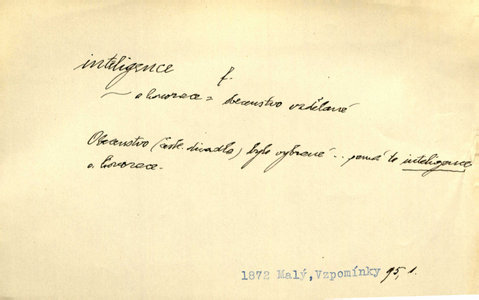 inteligence f.
~ a honorace = obecenstvo vzdělané
Obecenstvo (česk. divadla) bylo vybrané .. samá to inteligence
a honorace.
1872 Malý, Vzpomínky 95, 1.